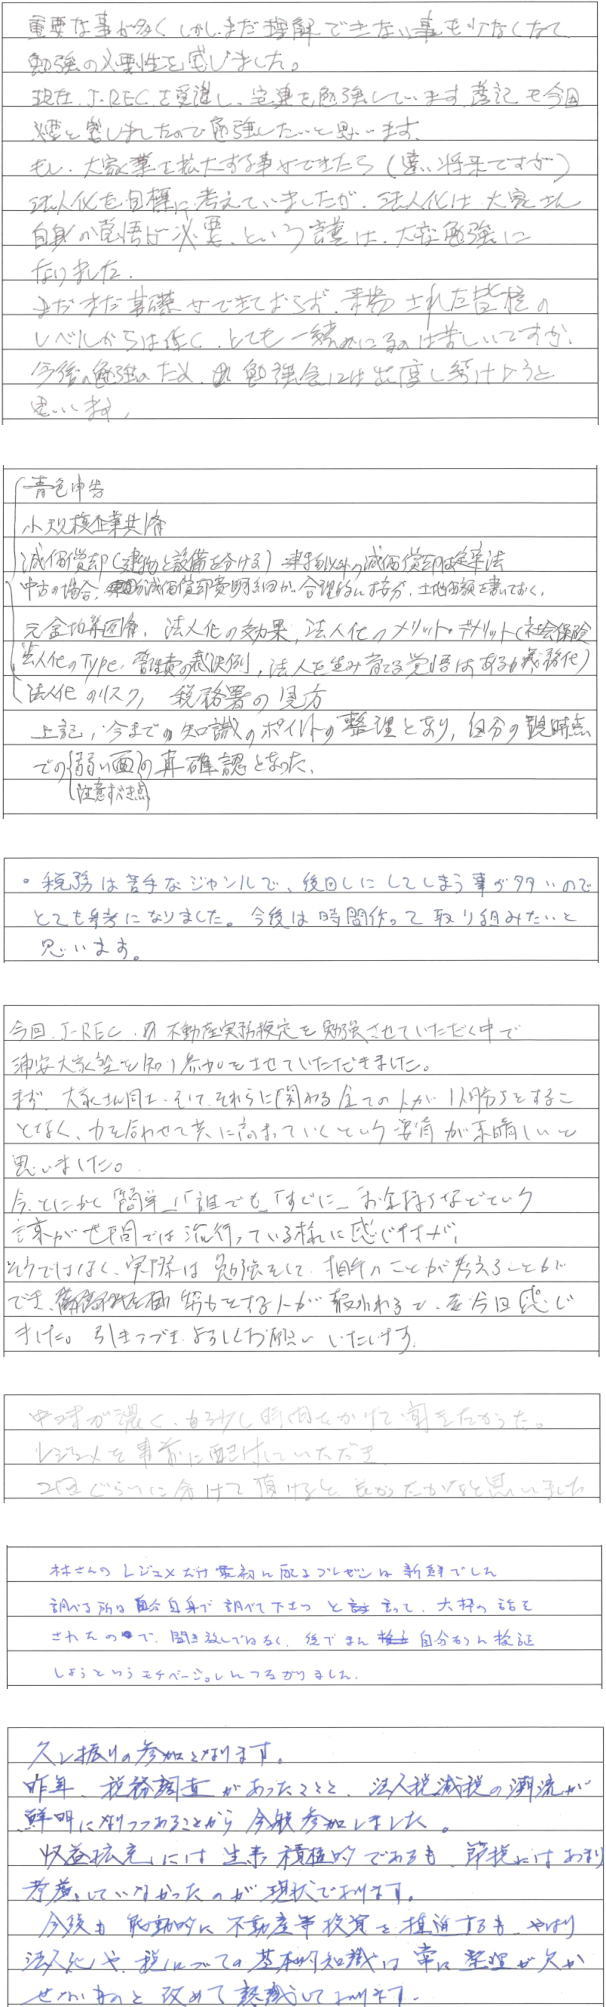 重要な事が多く しかし、まだ理解できない事も少なくなくて
勉強の必要性を感じました。
現在、J-RECを受講し、宅建を勉強しています。簿記も今回
必要と感じましたので勉強したいと思います。
もし、大家業を拡大する事ができたら(遠い将来ですが)
法人化を目標に考えていましたが、法人化は、大家さん
自身の覚悟が必要、という言葉は、大変勉強に
なりました。
まだまだ基礎ができておらず、 された皆様の
レベルからは低く、とても一緒に は苦しいですが、
今後の勉強のため、勉強会には出席し続けようと
思います。
青色申告
小規模企業共済
減価償却(建物と設備を分ける) 建物以外の減価償却は定率法
中古の場合、 減価償却費 合理的に按分、土地価額を書いておく、
元金均等返済、法人化の効果、法人化のメリット・デメリット(社会保険
法人化のType、管理費の裁決例、法人を生み育てる覚悟はあるか 義務化)
法人化のリスク、税務署の見方
上記、今までの知識のポイントの整理となり、自分の現時点
での弱い面の再確認となった。
(注意すべき点)
・税務は苦手なジャンルで、後回しにしてしまう事が多いので
とても参考になりました。今後は時間作って取り組みたいと
思います。
今回、J-REC の不動産実務検定を勉強させていただく中で
浦安大家塾を知り参加をさせていただきました。
まず、大家さん同士、そして、それらに関わる全ての人が とするこ
となく、力を合わせて共に高まっていくという姿勢が素晴しいと
思いました。
今、とにかく「簡単」「誰でも」「すぐに」 お金持ちなどという
言葉が世間では流行っている様に感じますが、
そうではなく、実際は勉強をして、相手のことが考えることが
でき、 努力をする人が報われると、を今日感じ
ました。引きつづき、よろしくお願いいたします。
中味が濃く、もう少し時間をかけて聞きたかった。
レジュメを事前に配付していただき
2回ぐらいに分けて頂けると良かったかなと思いました
林さんのレジュメだけ最初に配るプレゼンは新鮮でした
調べる所は自分自身で調べて下さいと言って、大枠の話を
されたので、聞き放しではなく、後でまた自分なりに検証
しようというモチベーションにつながりました。
久し振りの参加となります。
昨年、税務調査があったことと、法人税減税の潮流が
鮮明になりつつあることから今般参加しました。
「収益拡充」には生来積極的であるも、「節税」にはあまり
考慮していなかったのが現状であります。
今後も能動的に不動産等投資を推進するも、やはり
法人化や、税についての基本的知識は常に整理が欠か
せないものと改めて認識しております。